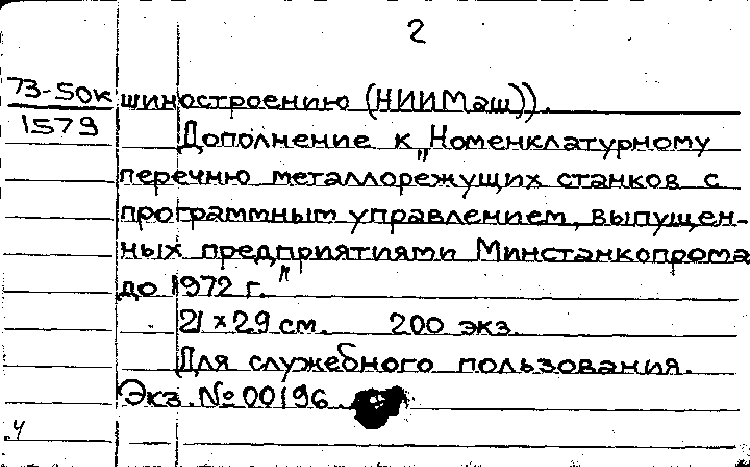 2
73-50к шиностроению (НИИМаш)).
1579 Дополнение к „Номенклатурному
перечню металлорежущих станков с
программным управлением, выпущен-
ных предприятиями Минстанкопрома
до 1972 г."
21 × 29 см. 200 экз.
Для служебного пользования.
Экз. № 00196
4